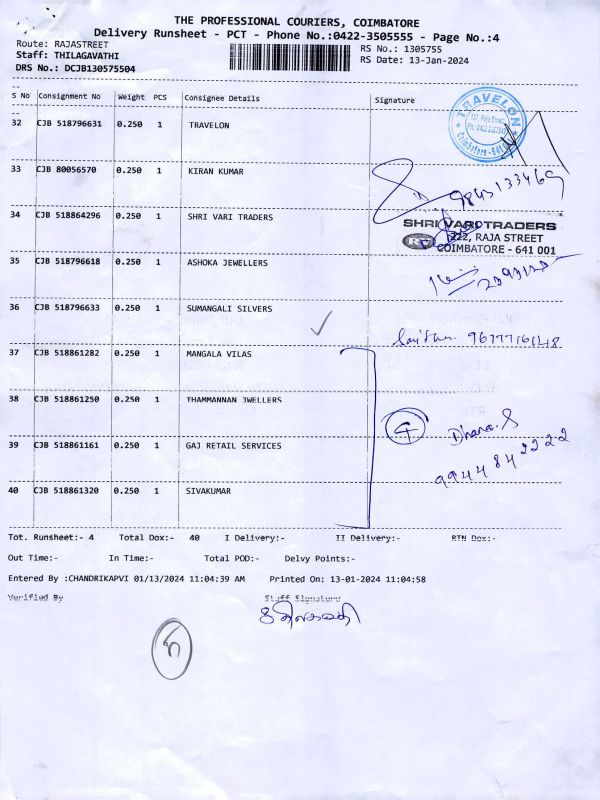 THE PROFESSIONAL COURIERS, COIMBATORE
Delivery Runsheet - PCT - Phone No.:0422-3505555 - Page No.:4
Route: RAJASTREET
Staff: THILAGAVATHI
DRS No.: DCJB130575504
RS No.: 1305755
RS Date: 13-Jan-2024
S No Consignment No Weight PCS Consignee Details Signature
32 CJB 518796631 0.250 1 TRAVELON
TRAVELON
Coimbatore - 641
33 CJB 80056570 0.250 1 KIRAN KUMAR
9843133469
34 CJB 518864296 0.250 1 SHRI VARI TRADERS
SHRI VARI TRADERS
322, RAJA STREET
COIMBATORE - 641 001
35 CJB 518796618 0.250 1 ASHOKA JEWELLERS
36 CJB 518796633 0.250 1 SUMANGALI SILVERS
37 CJB 518861282 0.250 1 MANGALA VILAS
38 CJB 518861250 0.250 1 THAMMANNAN JWELLERS
4 Dhana.S
39 CJB 518861161 0.250 1 GAJ RETAIL SERVICES
9944842222
40 CJB 518861320 0.250 1 SIVAKUMAR
Tot. Runsheet:- 4 Total Dox:- 40 I Delivery:- II Delivery:- RTN Dox:-
Out Time:- In Time:- Total POD:- Delvy Points:-
Entered By :CHANDRIKAPVI 01/13/2024 11:04:39 AM Printed On: 13-01-2024 11:04:58
Verified By Staff Signature